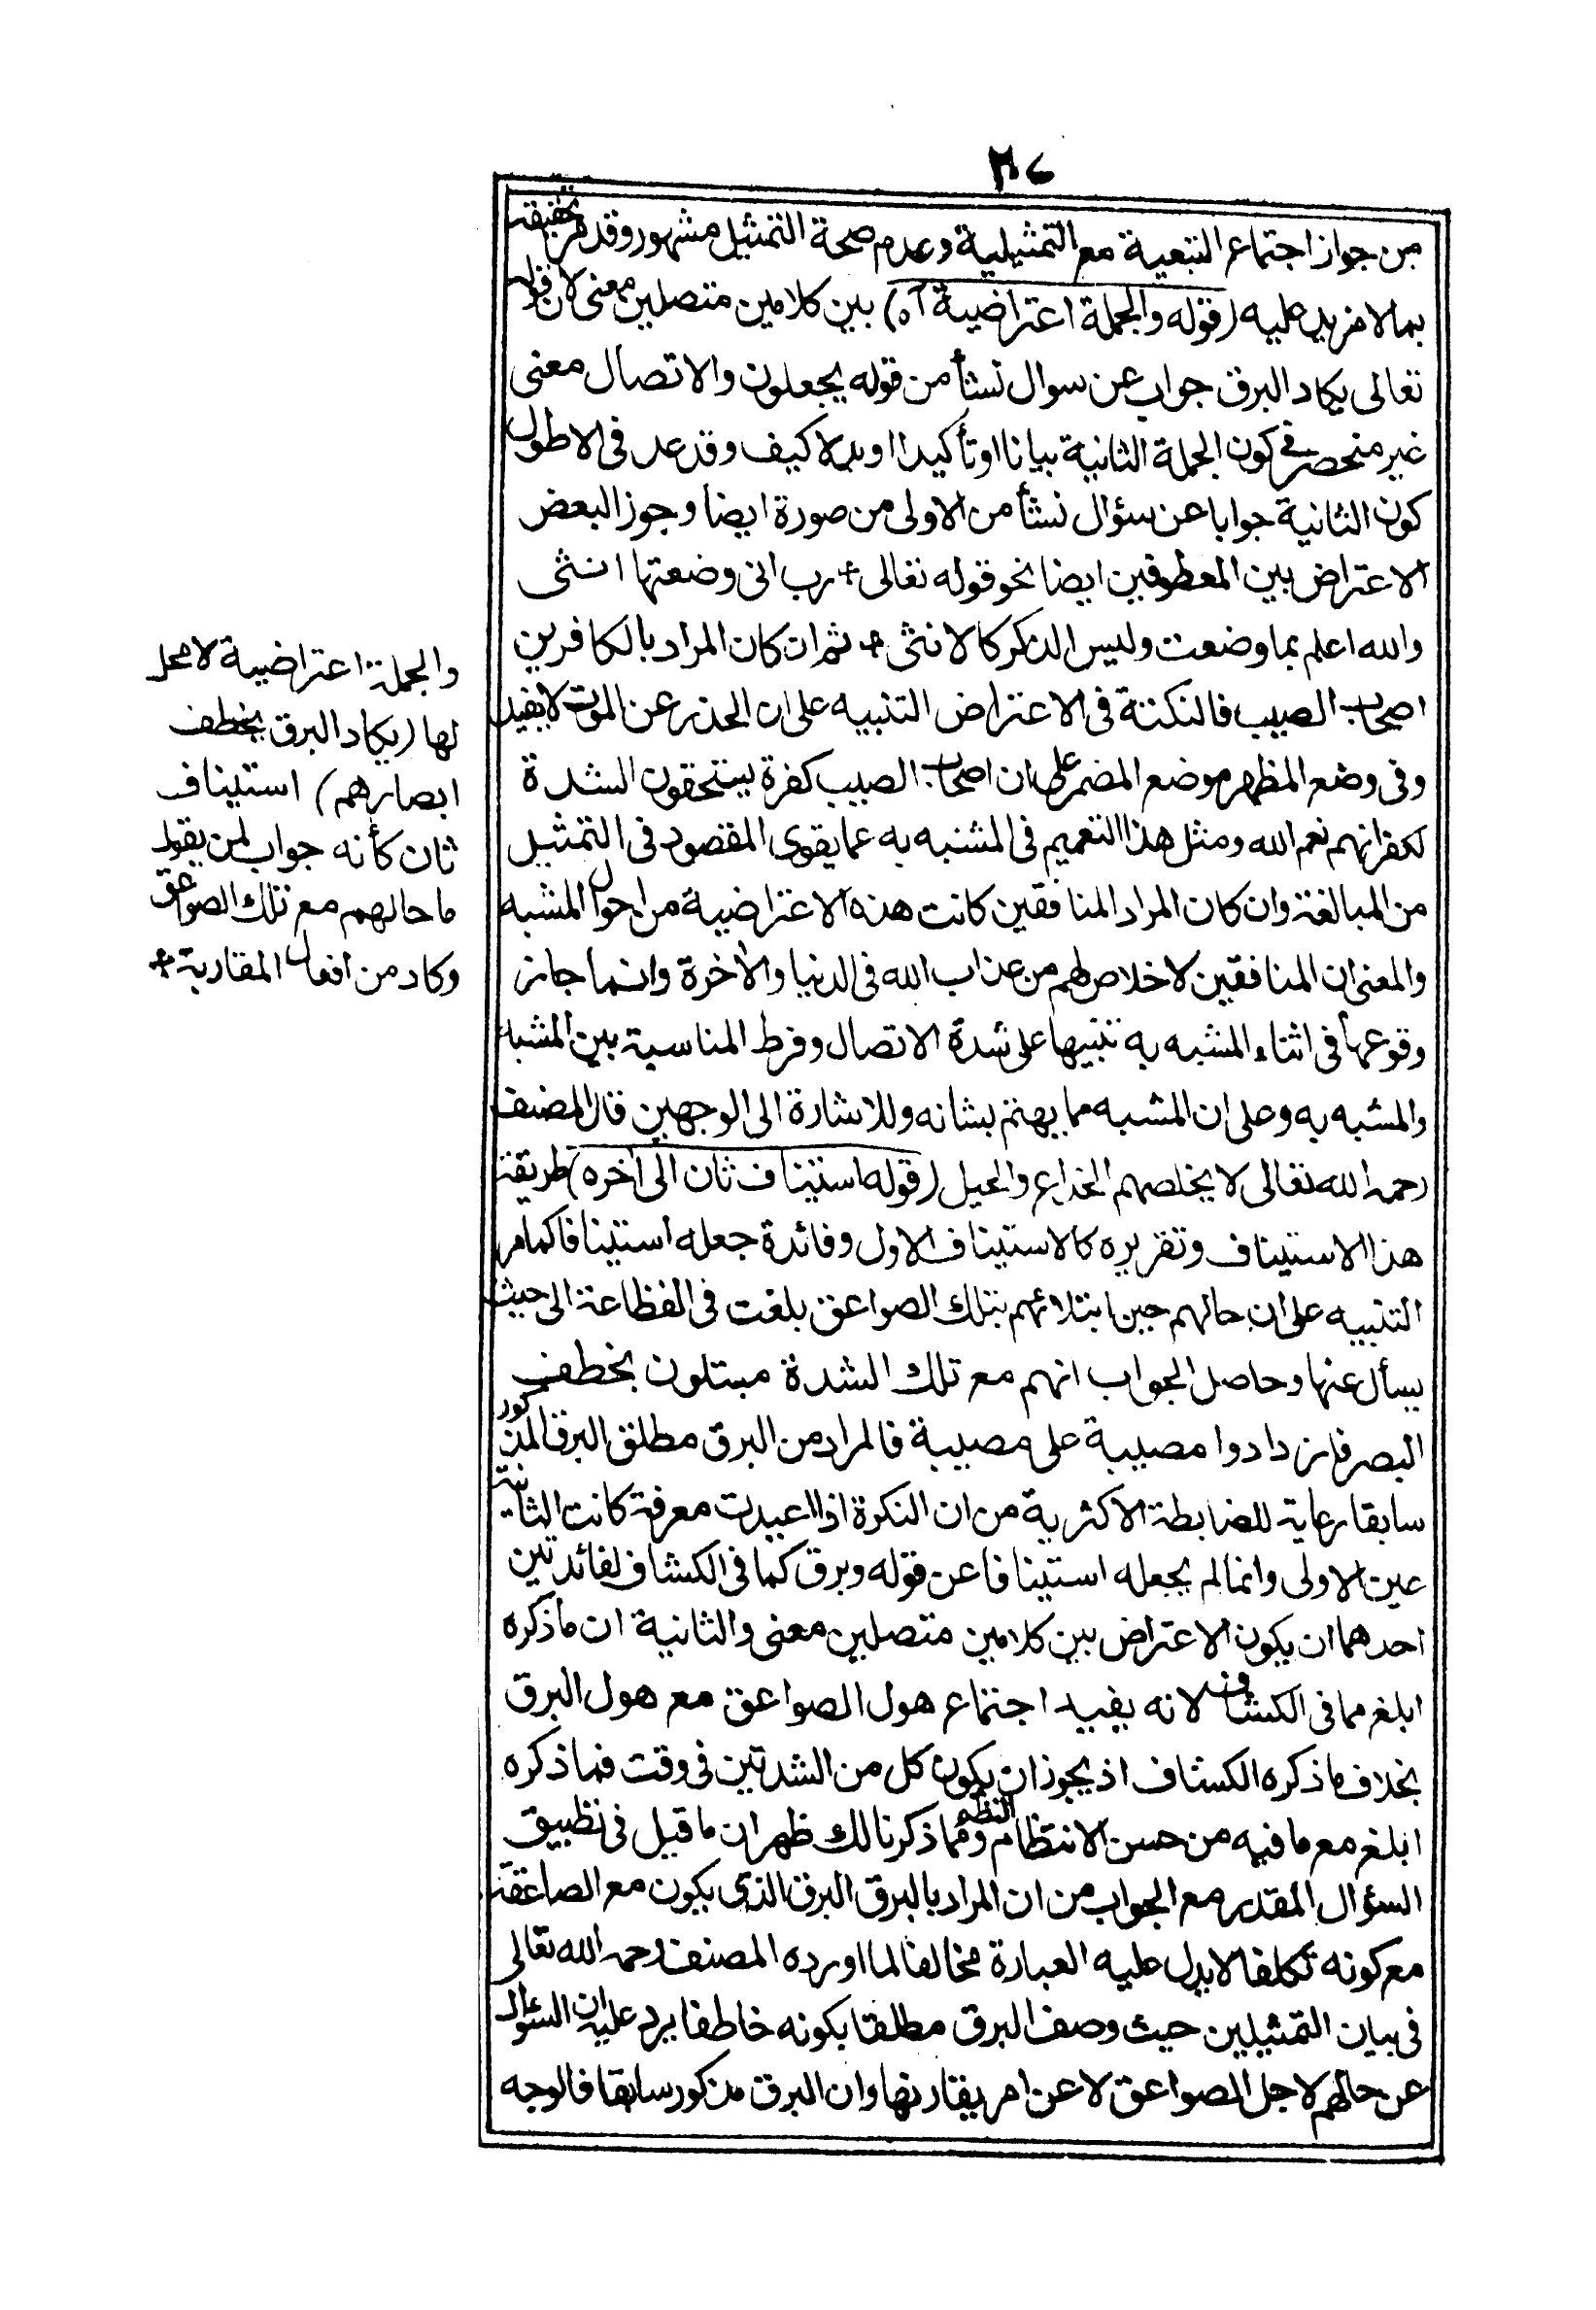 من جواز اجتماع التبعية مع التمثيلية وعدم صحة التمثيل مشهور وقد مر تحقيقه
بما لا مزيد عليه (قوله والجملة اعتراضية آه) بين كلامين متصلين معنى لان قوله
تعالى يكاد البرق جواب عن سوال نشأ من قوله يجعلون والاتصال معنى
غير منحصر في كون الجملة الثانية بيانا او تأكيدا او بدلا كيف وقد عد فى الاطول
كون الثانية جوابا عن سؤال نشأ من الاولى من صورة ايضا وجوز البعض
الاعتراض بين المعطوفين ايضا نحو قوله تعالى + رب انى وضعتها انثى
والله اعلم بما وضعت وليس الذكر كالانثى + ثم ان كان المراد بالكافرين
اصحاب الصيب فالنكتة فى الاعتراض التنبيه على ان الحذر عن الموت لا يفيد
وفى وضع المظهر موضع المضمر على ان اصحاب الصيب كفرة يستحقون الشدة
لكفرانهم نعم الله ومثل هذا التعميم فى المشبه به مما يقوى المقصود فى التمثيل
من المبالغة وان كان المراد المنافقين كانت هذه الاعتراضية من احوال المشبه
والمعنى ان المنافقين لا خلاص لهم من عذاب الله فى الدنيا والاخرة وانما جاز
وقوعها فى اثناء المشبه به تنبيها على شدة الاتصال وفرط المناسبة بين المشبه
والمشبه به وعلى ان المشبه مما يهتم بشانه وللاشارة الى الوجهين قال المصنف
رحمه الله تعالى لا يخلصهم الخداع والحيل (قوله استيناف ثان الى آخره) طريقة
هذا الاستيناف وتقريره كالاستيناف الاول وفائدة جعله استينافا كما مر
التنبيه على ان حالهم حين ابتلائهم بتلك الصواعق بلغت فى الفظاعة الى حيث
يسأل عنها وحاصل الجواب انهم مع تلك الشدة مبتلون بخطف
البصر فازدادوا مصيبة على مصيبة فالمراد من البرق مطلق البرق المذكور
سابقا رعاية للضابطة الاكثرية من ان النكرة اذا اعيدت معرفة كانت الثانية
عين الاولى وانما لم يجعله استينافا عن قوله وبرق كما فى الكشاف لفائدتين
احدهما ان يكون الاعتراض بين كلامين متصلين معنى والثانية ان ما ذكره
ابلغ مما فى الكشاف لانه يفيد اجتماع هول الصواعق مع هول البرق
بخلاف ما ذكره الكشاف اذ يجوز ان يكون كل من الشدتين فى وقت فما ذكره
ابلغ مع ما فيه من حسن الانتظام النظم ومما ذكرنا لك ظهر ان ما قيل فى تطبيق
السؤال المقدر مع الجواب من ان المراد بالبرق البرق الذى يكون مع الصاعقة
مع كونه تكلفا لا يدل عليه العبارة مخالف لما اورده المصنف رحمه الله تعالى
فى بيان التمثيلين حيث وصف البرق مطلقا بكونه خاطفا يرد عليه ان السؤال
عن حالهم لاجل الصواعق لا عن امر يقارنها وان البرق مذكور سابقا فالوجه
والجملة اعتراضية لا محل
لها (يكاد البرق يخطف
ابصارهم) استيناف
ثان كأنه جواب لمن يقول
ما حالهم مع تلك الصواعق
وكاد من افعال المقاربة +